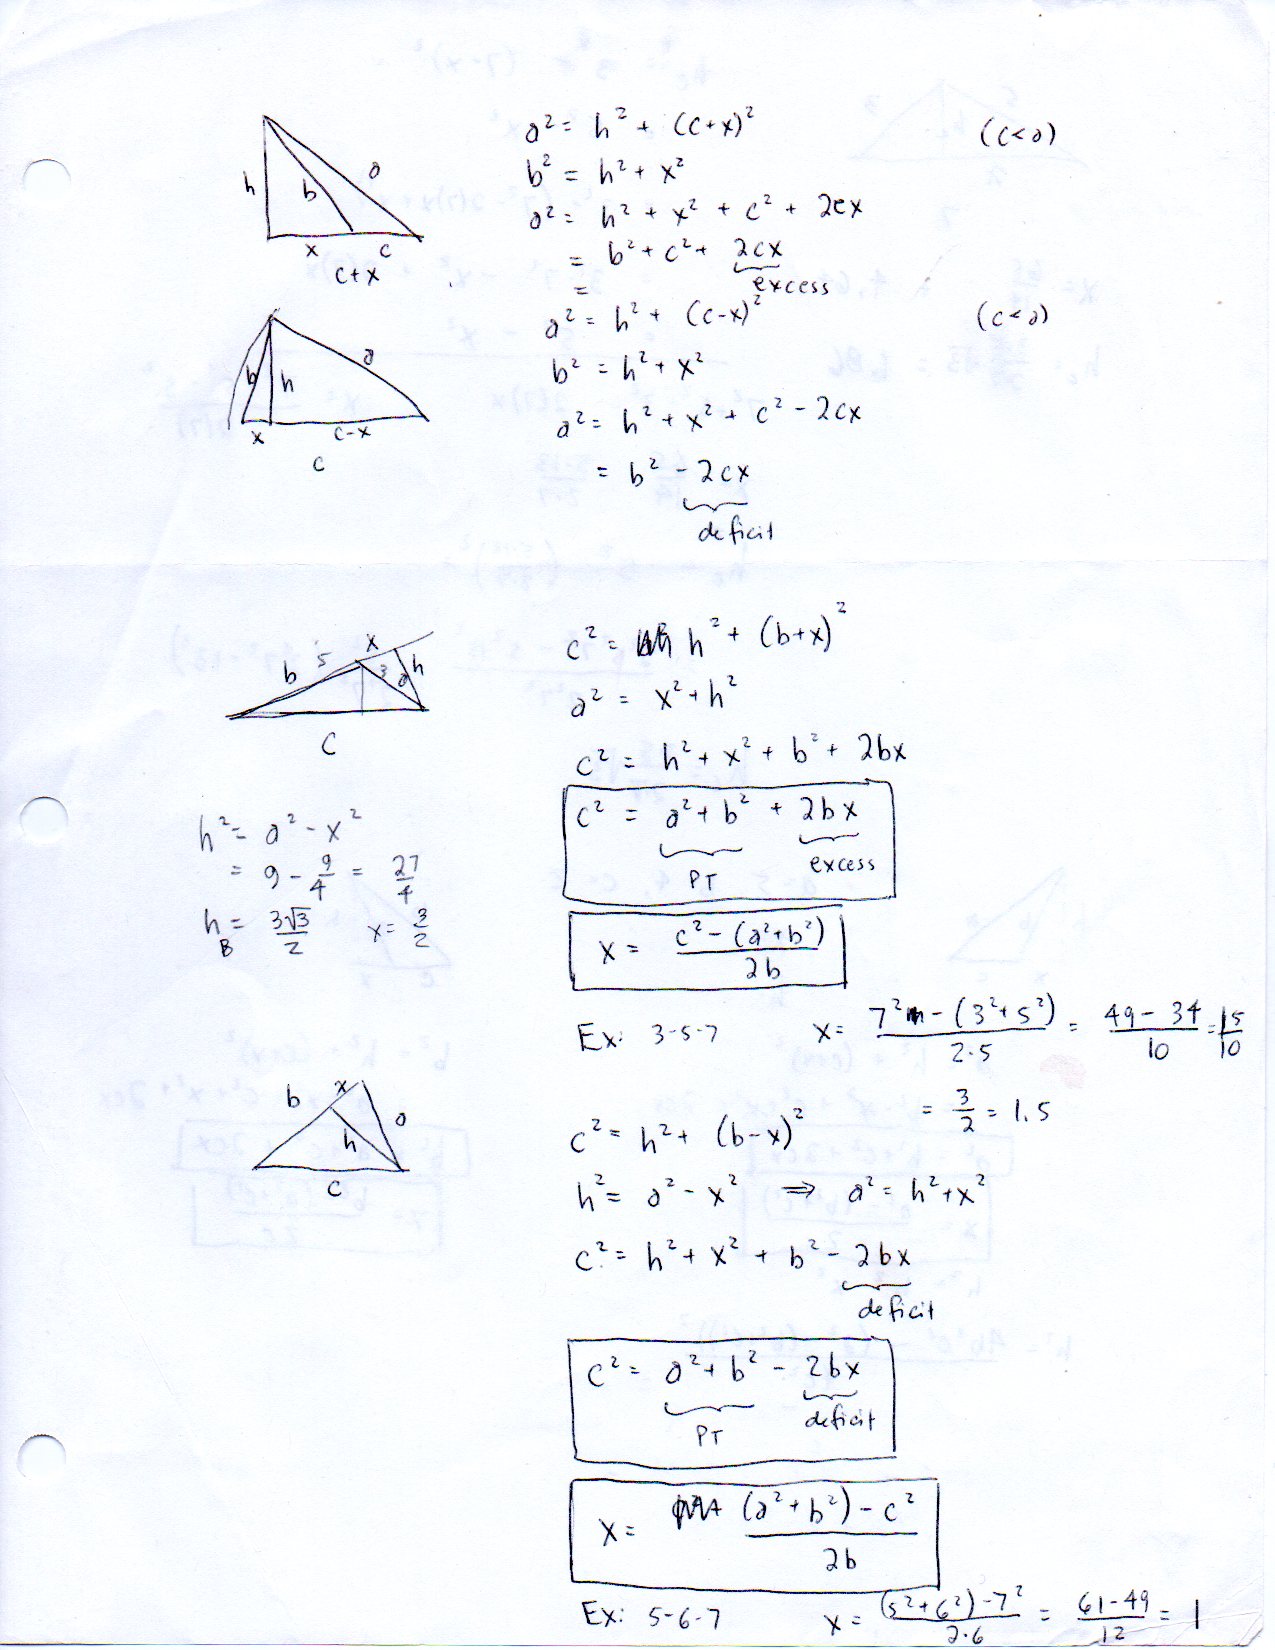 a² = h² + (c+x)² (c<a)
b² = h² + x²
a² = h² + x² + c² + 2cx
= b² + c² + 2cx
excess
=
h b a
x c
c+x
a² = h² + (c-x)² (c<a)
b² = h² + x²
a² = h² + x² + c² - 2cx
= b² - 2cx
deficit
b h a
x c-x
c
c² = h² + (b+x)²
a² = x² + h²
c² = h² + x² + b² + 2bx
c² = a² + b² + 2bx
PT excess
x = c² - (a² + b²) / 2b
x
b 5 3 a h
c
h² = a² - x²
= 9 - 9/4 = 27/4
h_B = 3√3/2 x = 3/2
Ex: 3-5-7 x = 7² - (3² + 5²) / 2·5 = 49 - 34 / 10 = 15/10
= 3/2 = 1.5
b x a
h
c
c² = h² + (b-x)²
h² = a² - x² ⇒ a² = h² + x²
c² = h² + x² + b² - 2bx
deficit
c² = a² + b² - 2bx
PT deficit
x = (a² + b²) - c² / 2b
Ex: 5-6-7 x = (5² + 6²) - 7² / 2·6 = 61 - 49 / 12 = 1